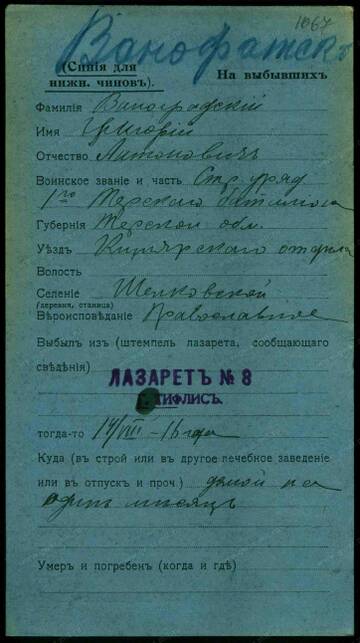 1067
(Синія для
нижн. чиновъ).
На выбывшихъ
Фамилія
Имя Григорій
Отчество Антоновичъ
Воинское званіе и часть Стр. уряд
1го Терского
Губернія Терской обл.
Уѣздъ Кизлярского отдѣла
Волость
Селеніе Шелковской
(деревня, станица)
Вѣроисповѣданіе Православное
Выбылъ изъ (штемпель лазарета, сообщающаго
свѣдѣнія)
ЛАЗАРЕТЪ № 8
ТИФЛИСЪ.
тогда-то 14/VIII - 16 года
Куда (въ строй или въ другое лечебное заведеніе
или въ отпускъ и проч.) домой на
одинъ мѣсяцъ
Умеръ и погребенъ (когда и гдѣ)